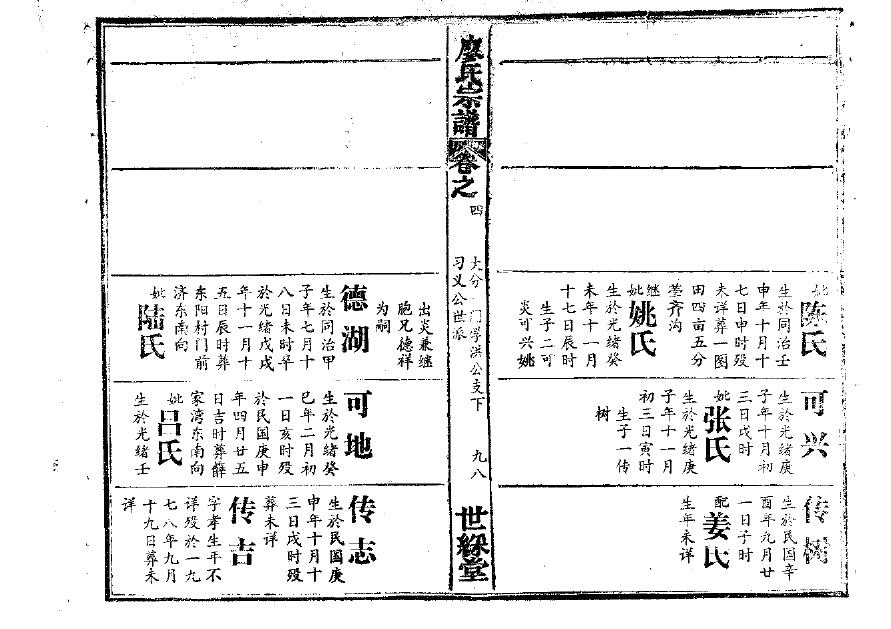 妣
陈氏
生於同治壬
申年十月十
七日申时殁
未详葬一图
田四亩五分
茔齐沟
继
妣
姚氏
生於光绪癸
未年十一月
十七日辰时
生子二可
炎可兴姚
可兴
生於光绪庚
子年十月初
三日戌时
妣
张氏
生於光绪庚
子年十一月
初三日寅时
生子一传
树
传树
生於民国辛
酉年九月廿
一日子时
配
姜氏
生年未详
廖氏宗譜
卷之
四
大分 门学洪公支下
习义公世派
九八
世綵堂
出炎兼继
胞兄德祥
为嗣
德湖
生於同治甲
子年七月十
八日未时卒
於光绪戊戌
年十一月十
五日辰时葬
东阳村门前
济东南向
妣
陆氏
可地
生於光绪癸
巳年二月初
一日亥时殁
於民国庚申
年四月廿五
日吉时葬薛
家湾东南向
妣
吕氏
生於光绪壬
传志
生於民国庚
申年十月十
三日戌时殁
葬未详
传吉
字孝生年不
详殁於一九
七八年九月
十九日葬未
详